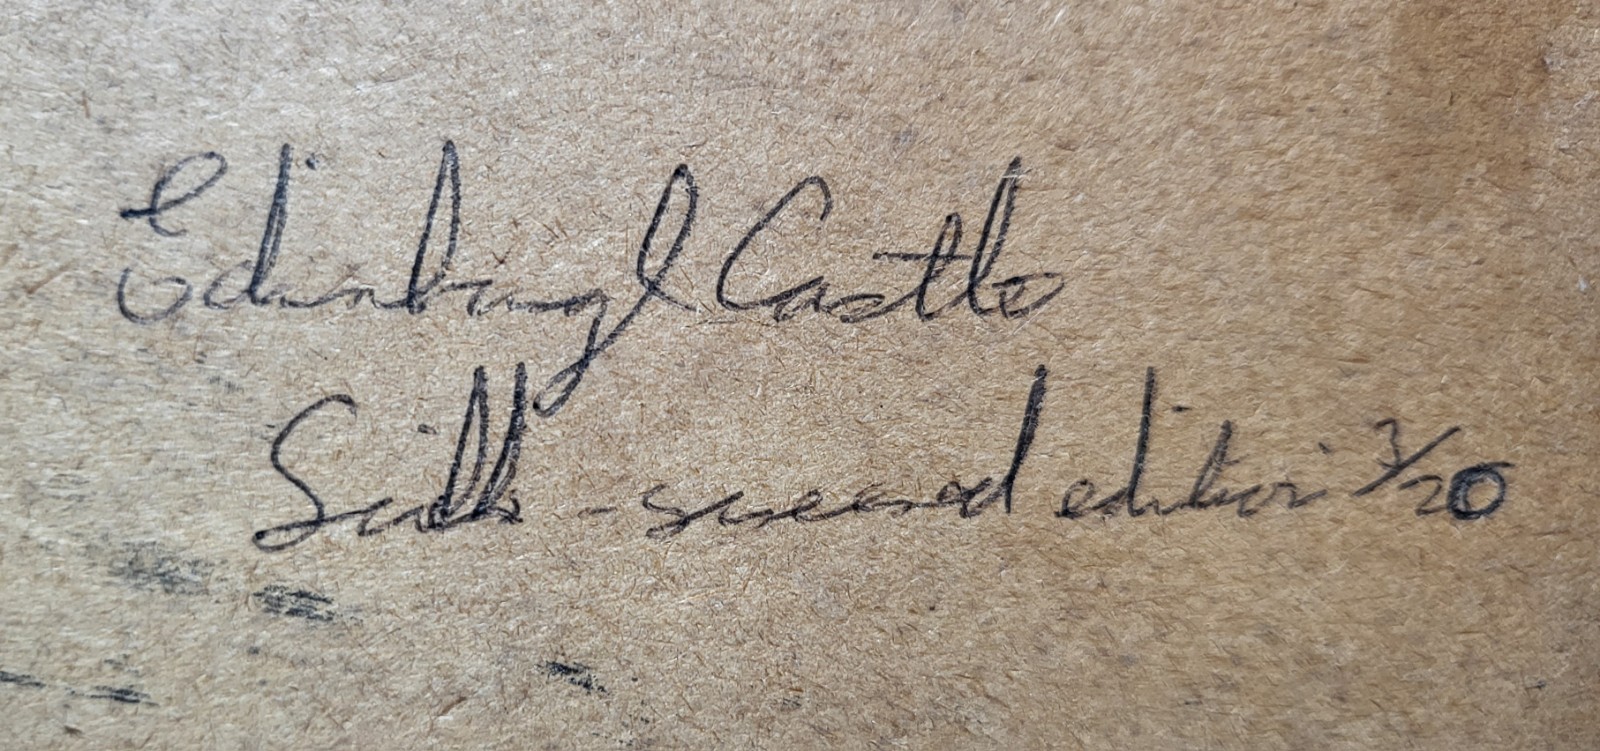 Edinburgh Castle
Silk - second edition 3/20